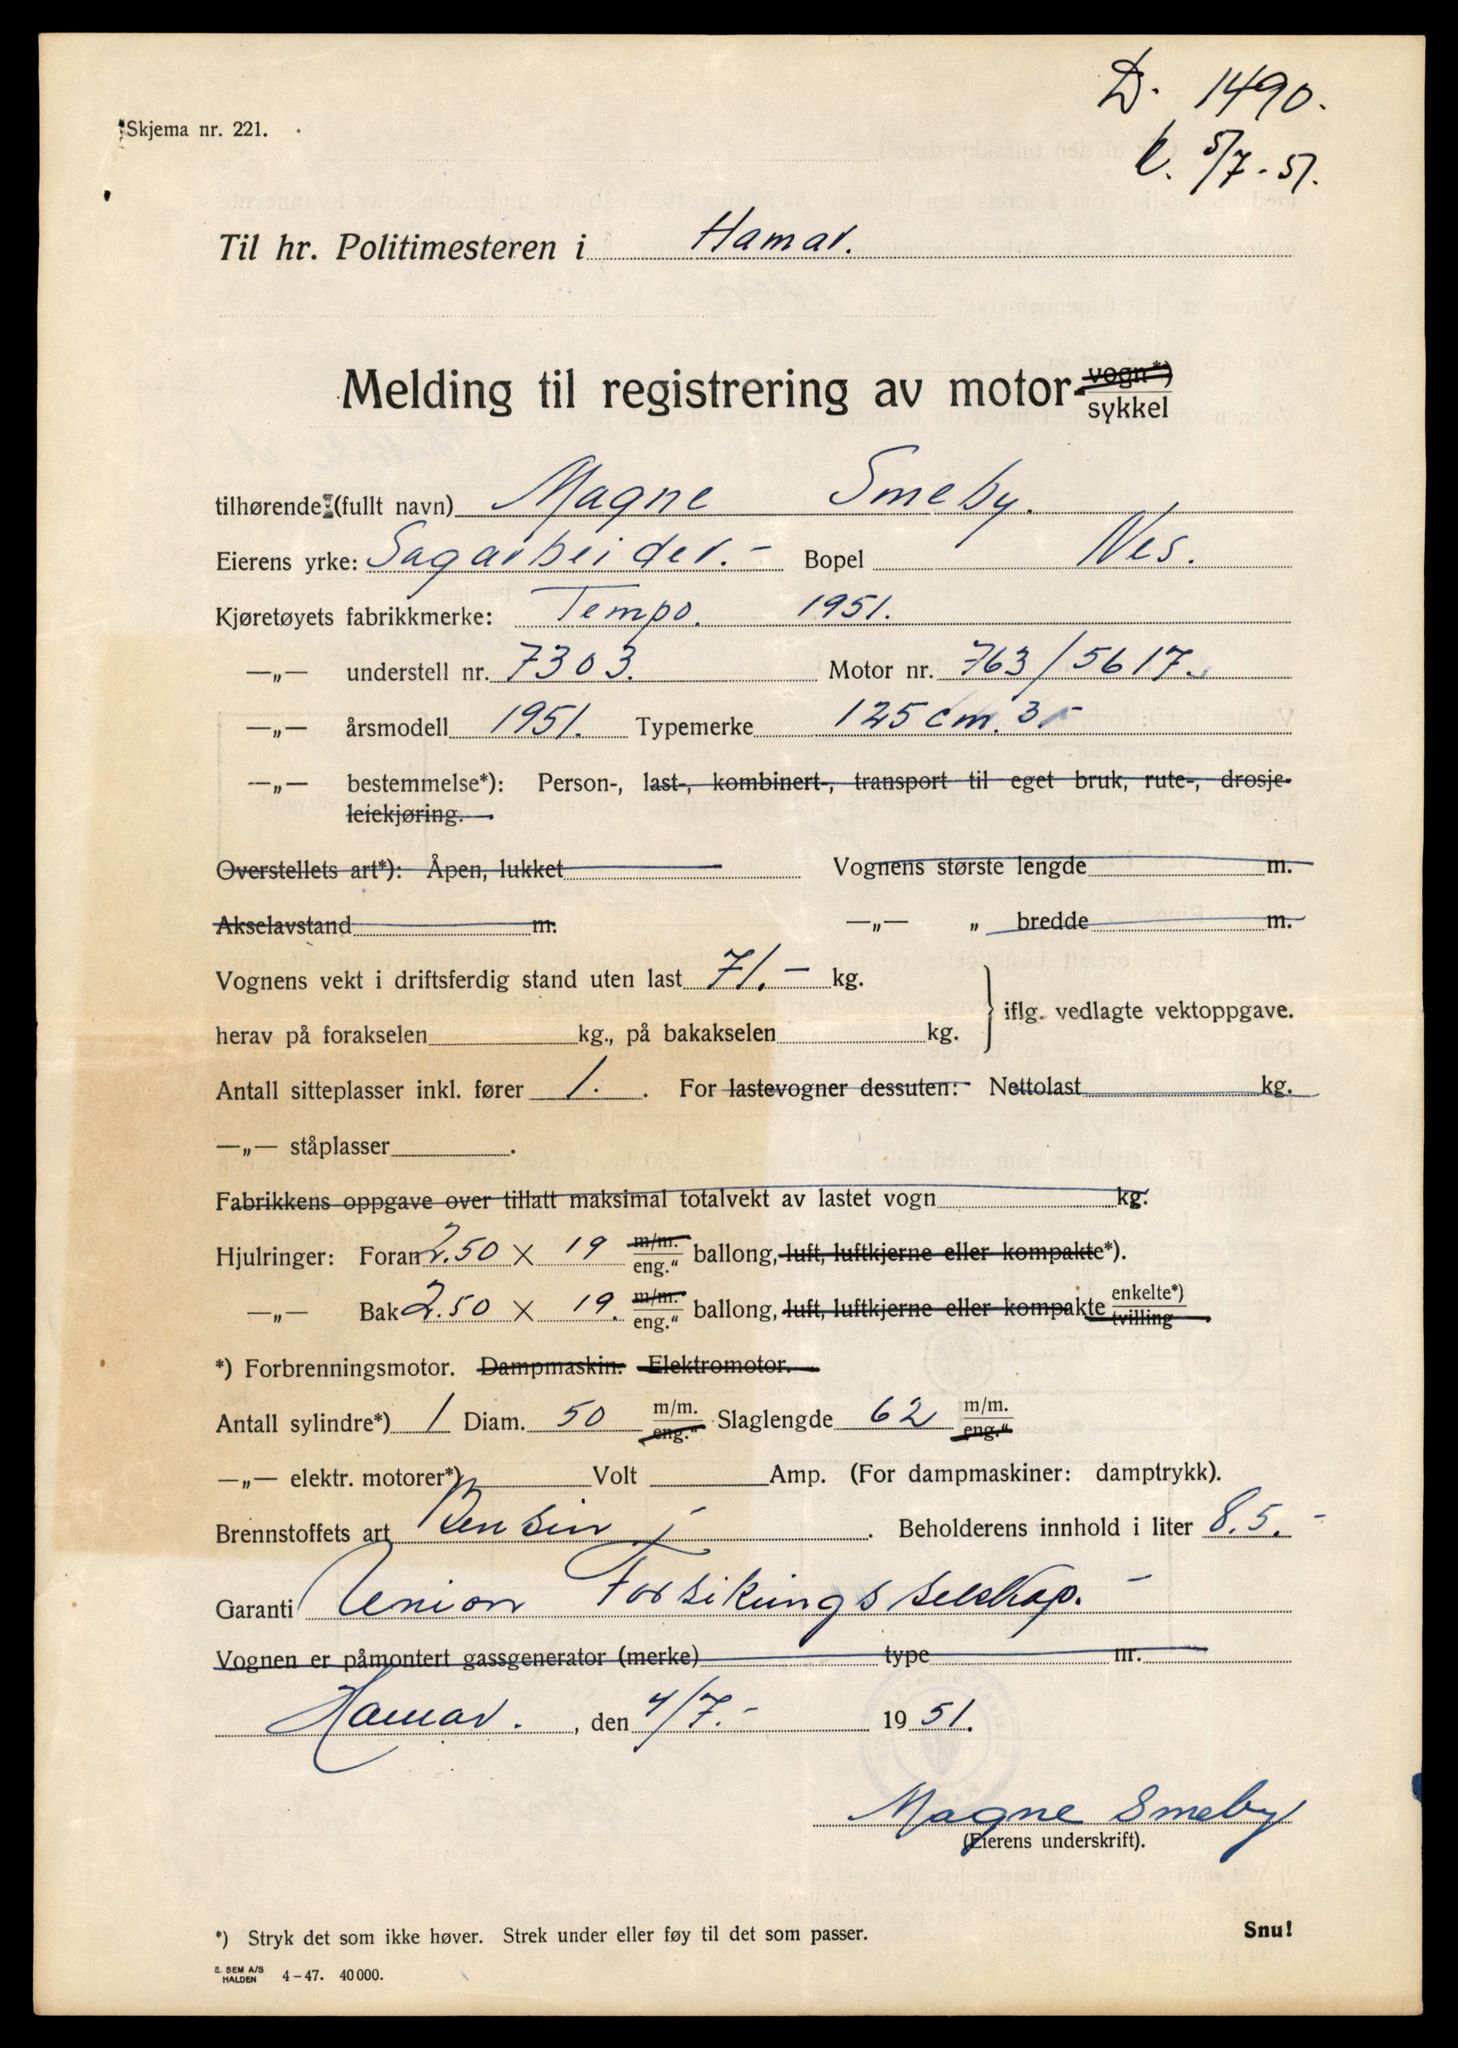 D. 1490.
Skjema nr. 221.
5/7-51.
Til hr. Politimesteren i Hamar.
Melding til registrering av motor- vogn*) sykkel
tilhørende: (fullt navn) Magne Smeby.
Eierens yrke: Sagarbeider.- Bopel Nes.
Kjøretøyets fabrikkmerke: Tempo. 1951.
—„— understell nr. 7303. Motor nr. 763/5617.
—„— årsmodell 1951. Typemerke 125 cm.3-
—„— bestemmelse*): Person-, last-, kombinert-, transport til eget bruk, rute-, drosje-
leiekjøring.
Overstellets art*): Åpen, lukket Vognens største lengde m.
Akselavstand m. —„— „ bredde m.
Vognens vekt i driftsferdig stand uten last 71.- kg.
iflg. vedlagte vektoppgave.
herav på forakselen kg., på bakakselen kg.
Antall sitteplasser inkl. fører 1. . For lastevogner dessuten: Nettolast kg.
—„— ståplasser .
Fabrikkens oppgave over tillatt maksimal totalvekt av lastet vogn kg.
Hjulringer: Foran 2.50 x 19 m/m. eng." ballong, luft, luftkjerne eller kompakte*).
—„— Bak 2.50 x 19. m/m. eng." ballong, luft, luftkjerne eller kompakte enkelte*) tvilling
*) Forbrenningsmotor. Dampmaskin. Elektromotor.
Antall sylindre*) 1 Diam. 50 m/m. eng." Slaglengde 62 m/m. eng."
—„— elektr. motorer*) Volt Amp. (For dampmaskiner: damptrykk).
Brennstoffets art Bensin . Beholderens innhold i liter 8.5.-
Garanti Union Forsikringsselskap.-
Vognen er påmontert gassgenerator (merke) type nr.
Hamar. , den 4/7.- 1951.
Magne Smeby
(Eierens underskrift).
*) Stryk det som ikke høver. Strek under eller føy til det som passer. Snu!
E. SEM A/S
HALDEN 4-47. 40000.